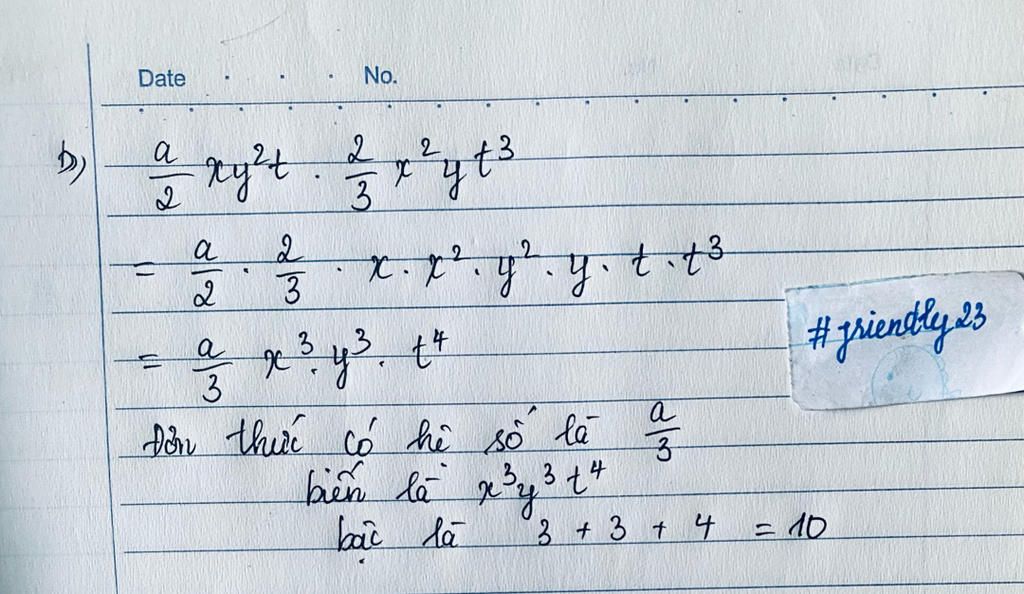 Date . . . No.
b) a/2 xy²t . 2/3 x²yt³
= a/2 . 2/3 . x . x² . y² . y . t . t³
= a/3 x³ . y³ . t⁴
#friendly23
Đơn thức có hệ số là a/3
biến là x³y³t⁴
bậc là 3 + 3 + 4 = 10